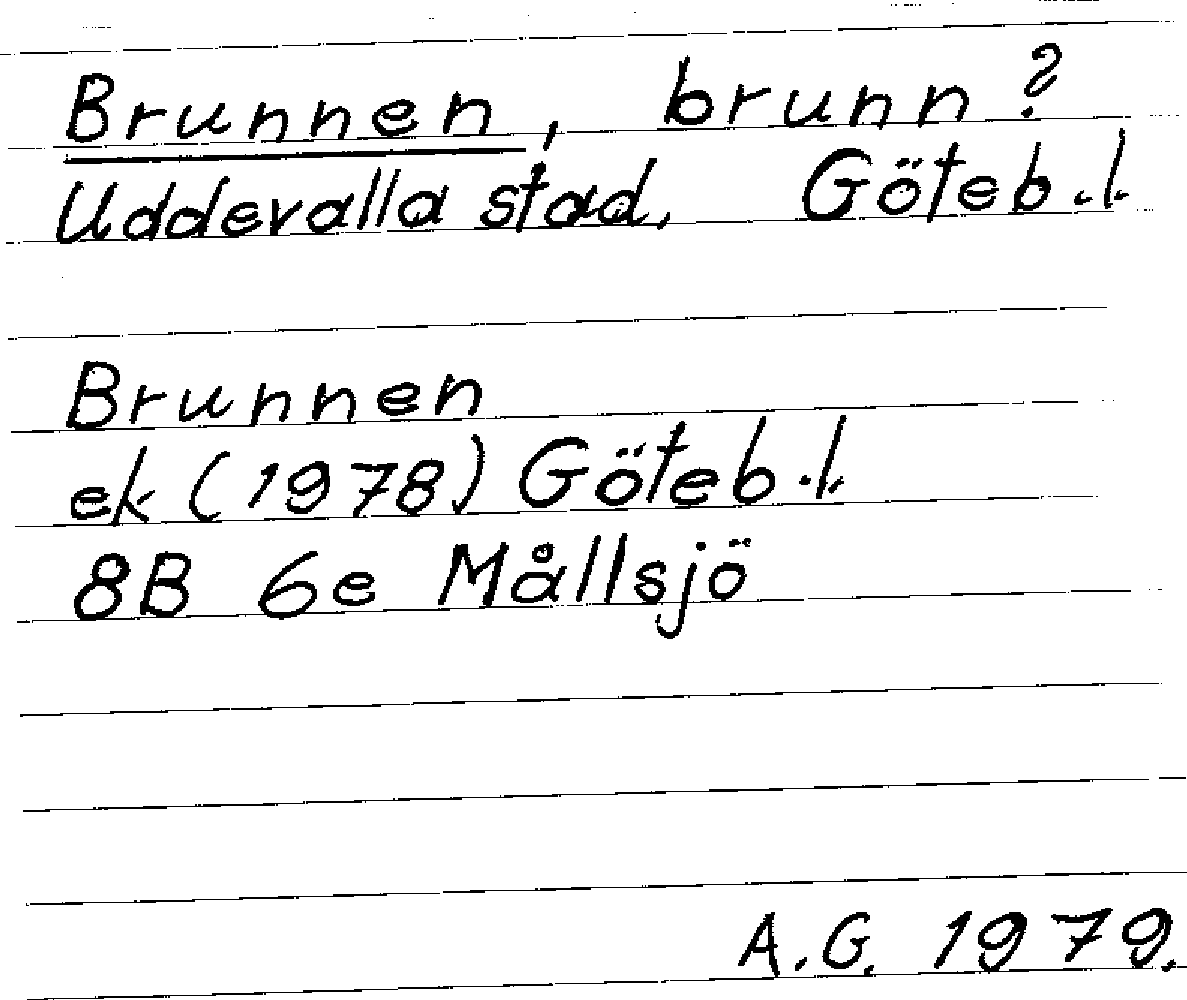 Brunnen, brunn?
Uddevalla stad, Göteb.l.
Brunnen
ek (1978) Göteb.l.
8B 6e Mållsjö
A.G. 1979.